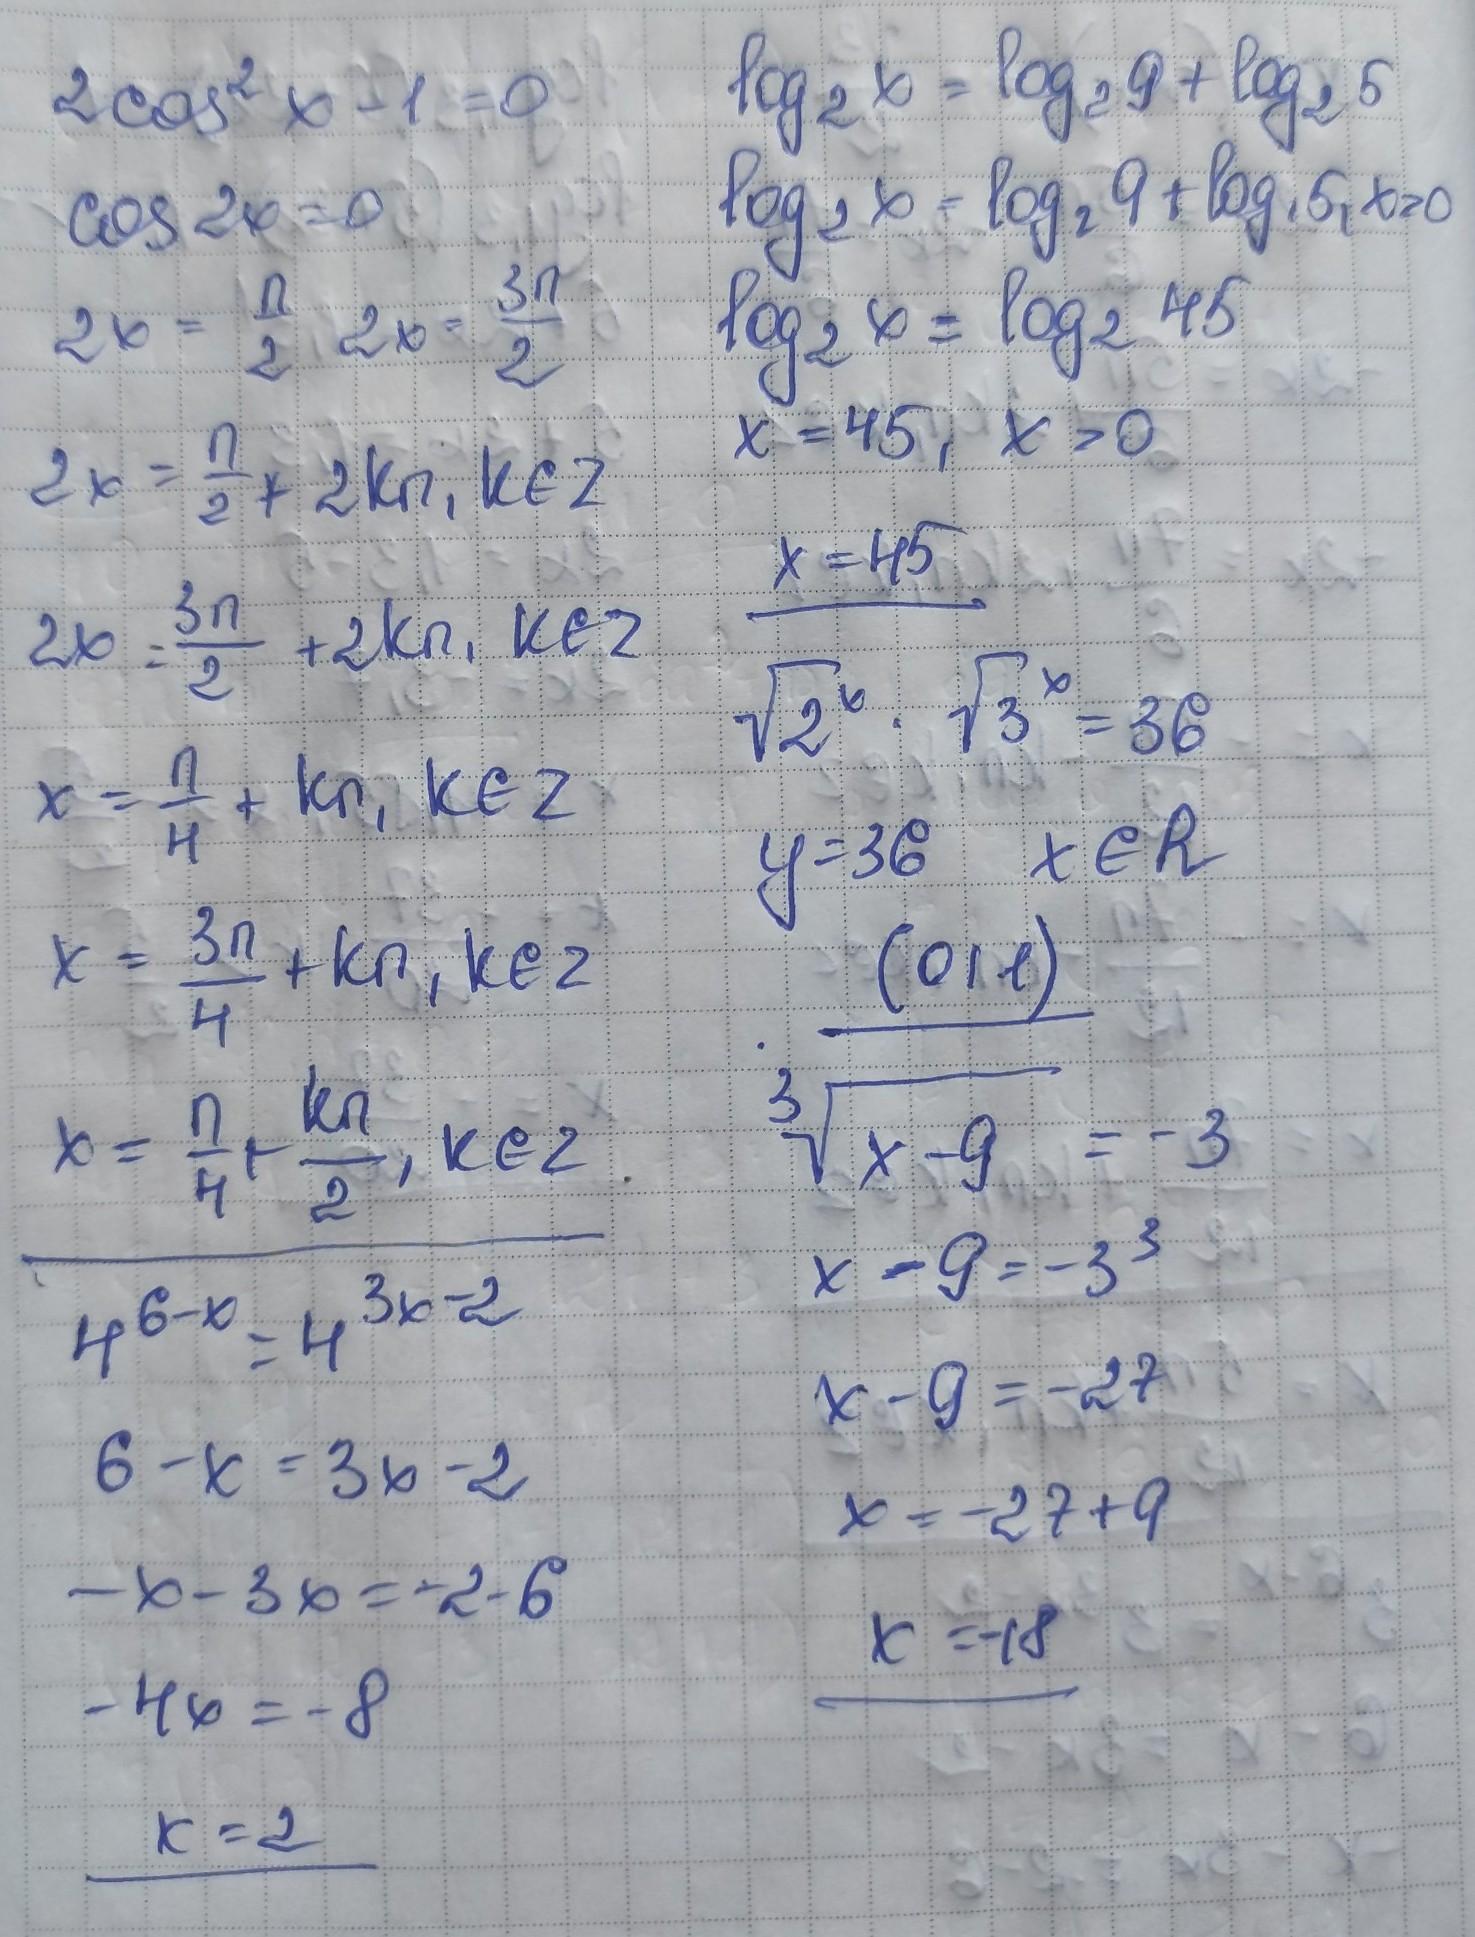 2cos² x - 1 = 0
cos 2x = 0
2x = п/2 2x = 3п/2
2x = п/2 + 2kп, k ∈ Z
2x = 3п/2 + 2kп, k ∈ Z
x = п/4 + kп, k ∈ Z
x = 3п/4 + kп, k ∈ Z
x = п/4 + kп/2, k ∈ Z
4^(6-x) = 4^(3x-2)
6 - x = 3x - 2
-x - 3x = -2 - 6
-4x = -8
x = 2
log₂ x = log₂ 9 + log₂ 5
log₂ x = log₂ 9 + log₂ 5, x > 0
log₂ x = log₂ 45
x = 45, x > 0
x = 45
√2^x · √3^x = 36
y = 36 x ∈ R
(0, 1)
³√(x - 9) = -3
x - 9 = -3³
x - 9 = -27
x = -27 + 9
x = -18